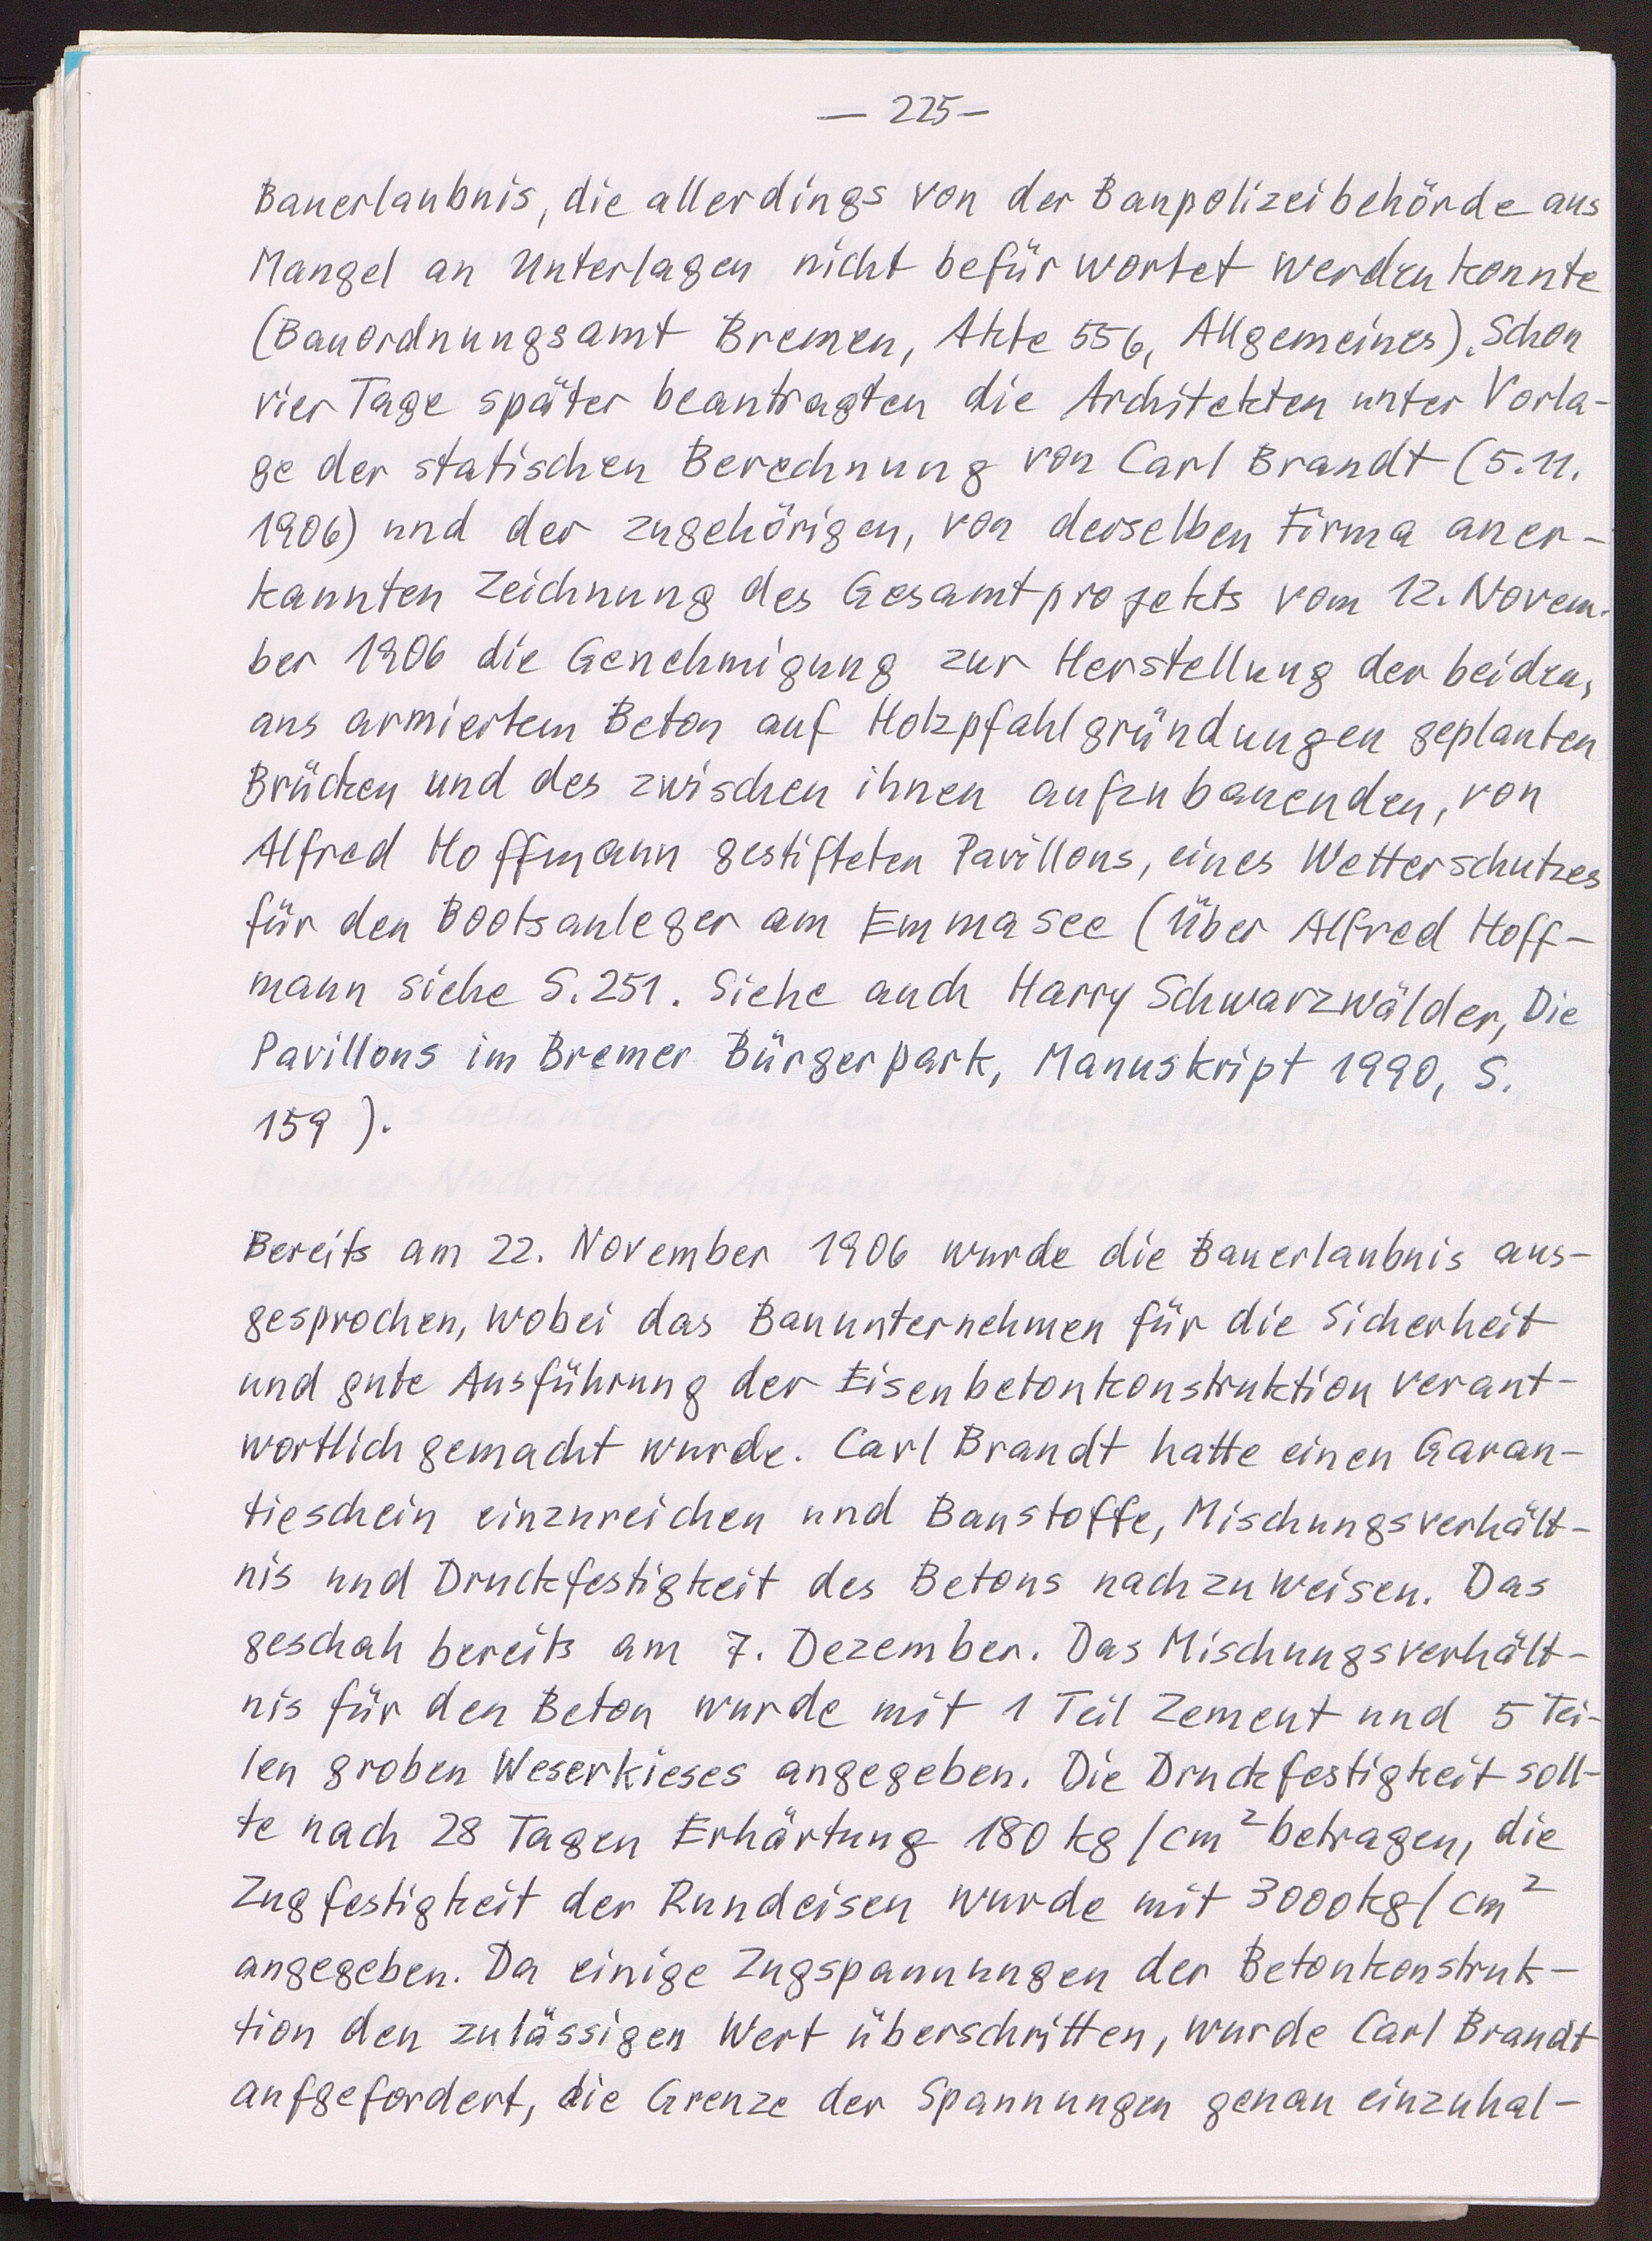 — 225 —
Bauerlaubnis, die allerdings von der Baupolizeibehörde aus
Mangel an Unterlagen nicht befürwortet werden konnte
(Bauordnungsamt Bremen, Akte 556, Allgemeines). Schon
vier Tage später beantragten die Architekten unter Vorla-
ge der statischen Berechnung von Carl Brandt (5.11.
1906) und der zugehörigen, von derselben Firma aner-
kannten Zeichnung des Gesamtprojekts vom 12. Novem-
ber 1906 die Genehmigung zur Herstellung der beiden,
aus armiertem Beton auf Holzpfahlgründungen geplanten
Brücken und des zwischen ihnen aufzubauenden, von
Alfred Hoffmann gestifteten Pavillons, eines Wetterschutzes
für den Bootsanleger am Emmasee (Über Alfred Hoff-
mann siehe S. 251. Siehe auch Harry Schwarzwälder, Die
Pavillons im Bremer Bürgerpark, Manuskript 1990, S.
159).
Bereits am 22. November 1906 wurde die Bauerlaubnis aus-
gesprochen, wobei das Bauunternehmen für die Sicherheit
und gute Ausführung der Eisenbetonkonstruktion verant-
wortlich gemacht wurde. Carl Brandt hatte einen Garan-
tieschein einzureichen und Baustoffe, Mischungsverhält-
nis und Druckfestigkeit des Betons nachzuweisen. Das
geschah bereits am 7. Dezember. Das Mischungsverhält-
nis für den Beton wurde mit 1 Teil Zement und 5 Tei-
len groben Weserkieses angegeben. Die Druckfestigkeit soll-
te nach 28 Tagen Erhärtung 180 kg/cm² betragen, die
Zugfestigkeit der Rundeisen wurde mit 3000 kg/cm²
angegeben. Da einige Zugspannungen der Betonkonstruk-
tion den zulässigen Wert überschritten, wurde Carl Brandt
aufgefordert, die Grenze der Spannungen genau einzuhal-